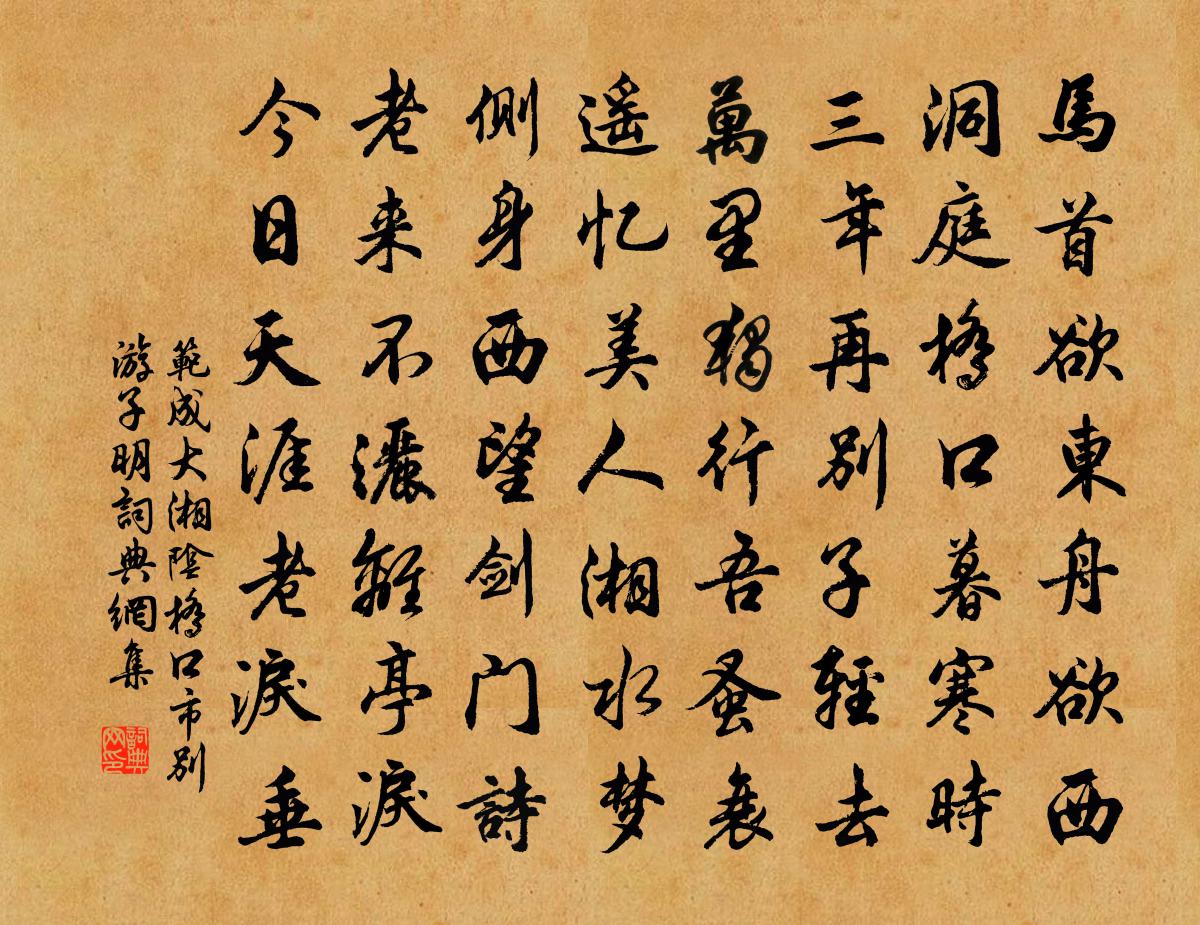 馬首欲東舟欲西
洞庭橋口暮寒時
三年再别子輕去
萬里獨行吾蚤衰
遥忆美人湘水梦
側身西望剑门詩
老来不灑離亭淚
今日天涯老淚垂
範成大湘陰橋口市别
游子明詞典網集
詞典网印